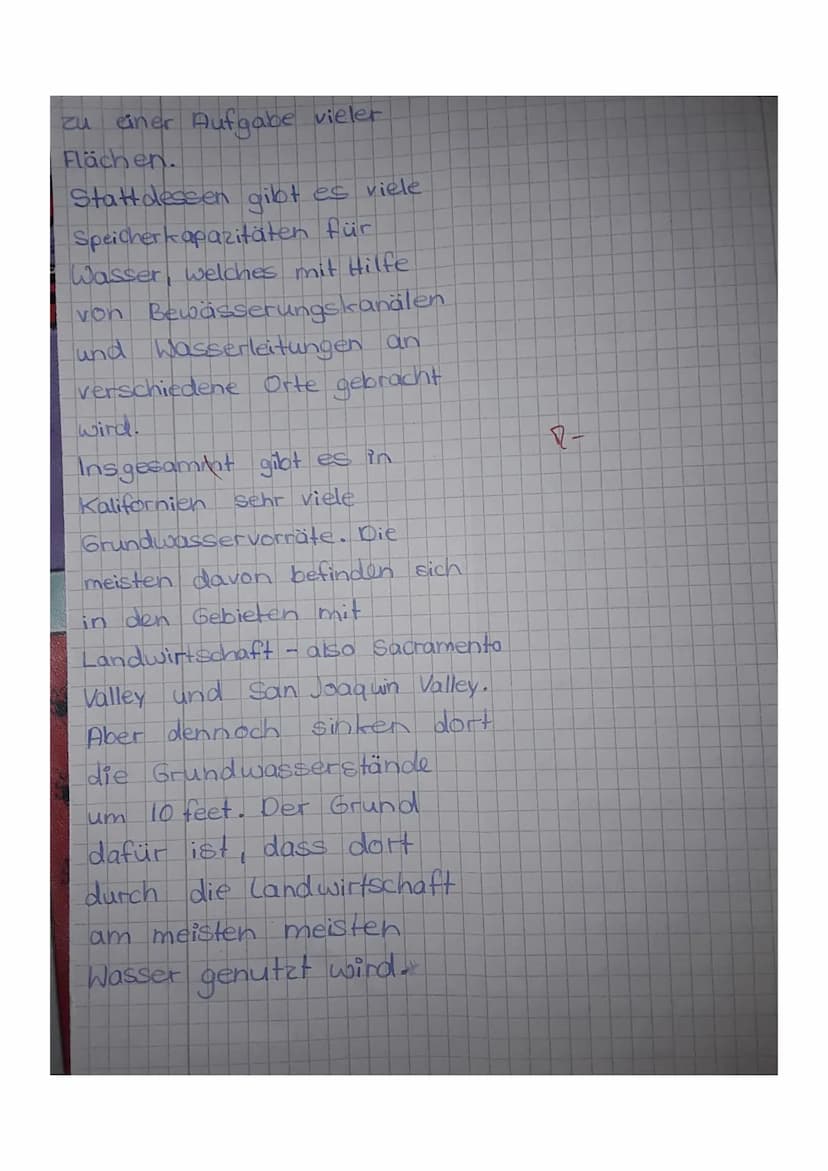 zu einer Aufgabe vieler
Flächen.
Stattdessen gibt es viele
Speicherkapazitäten für
Wasser, welches mit Hilfe
von Bewässerungskanälen
und Wasserleitungen an
verschiedene Orte gebracht
wird.
R-
Insgesamt gibt es in
Kalifornien sehr viele
Grundwasservorräte. Die
meisten davon befinden sich
in den Gebieten mit
Landwirtschaft - also Sacramento
Valley und San Joaquin Valley.
Aber dennoch sinken dort
die Grundwasserstände
um 10 feet. Der Grund
dafür ist, dass dort
durch die Landwirtschaft
am meisten meisten
Wasser genutzt wird.